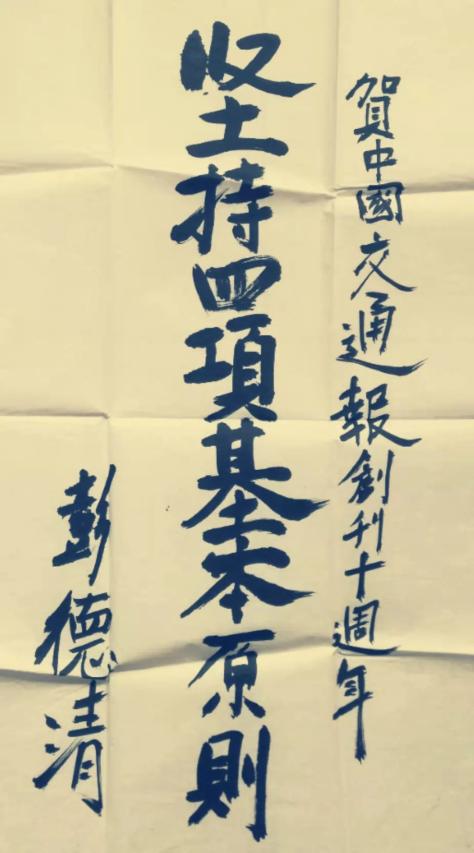 賀中國交通報創刊十週年
坚持四項基本原則
彭德清